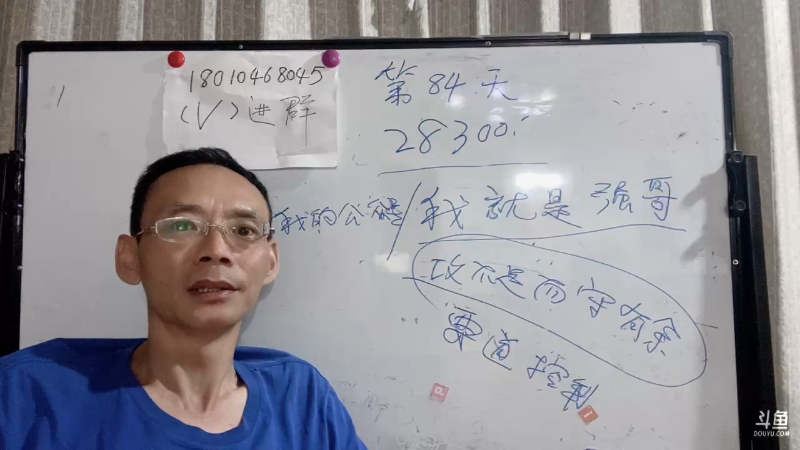 18010468045
(V)进群
第84天
28300.
我的公众号/我就是强哥
攻不是而守有余
要道控制
斗鱼
DOUYU.COM